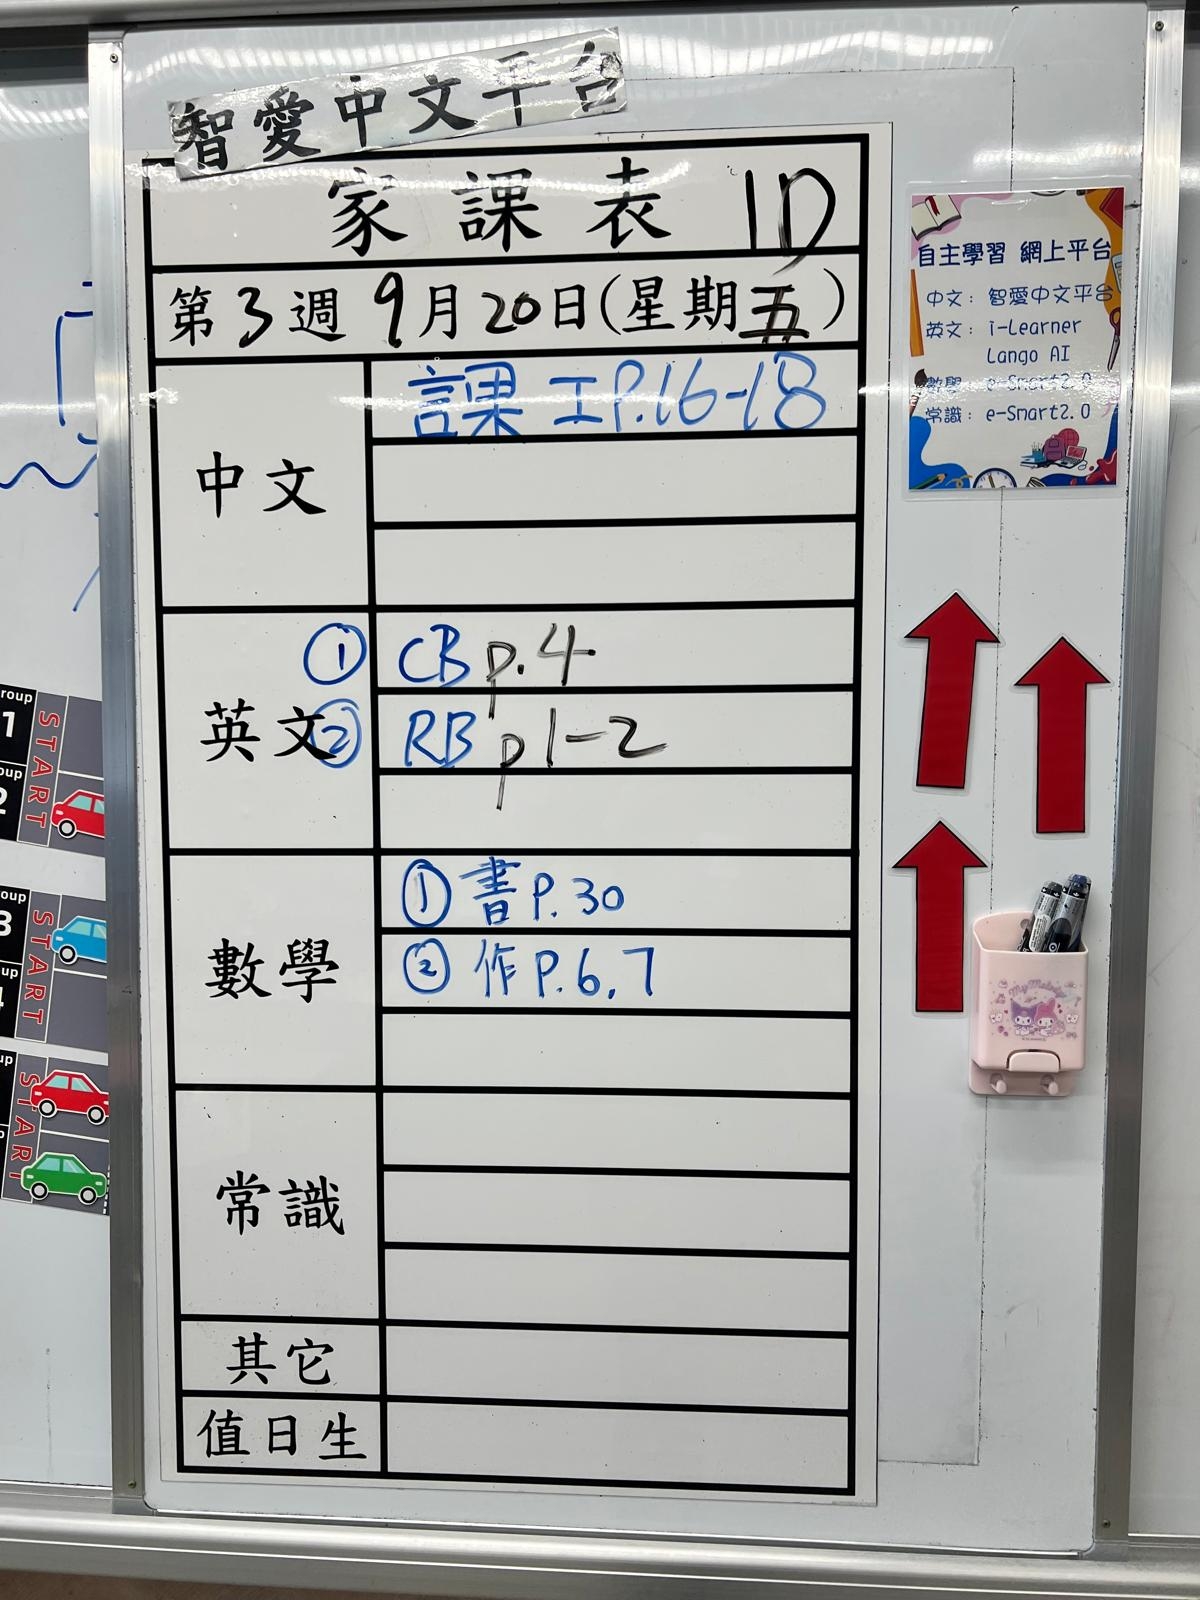 智愛中文平台
家課表 1D
第3週 9月20日(星期五)
中文
課工P.16-18
英文
① CB p.4
② RB p1-2
數學
① 書P.30
② 作P.6,7
常識
其它
值日生
自主學習 網上平台
中文：智愛中文平台
英文：i-Learner
Lango AI
數學：e-Smart2.0
常識：e-Smart2.0
roup
1
START
oup
2
oup
3
START
oup
4
up
START